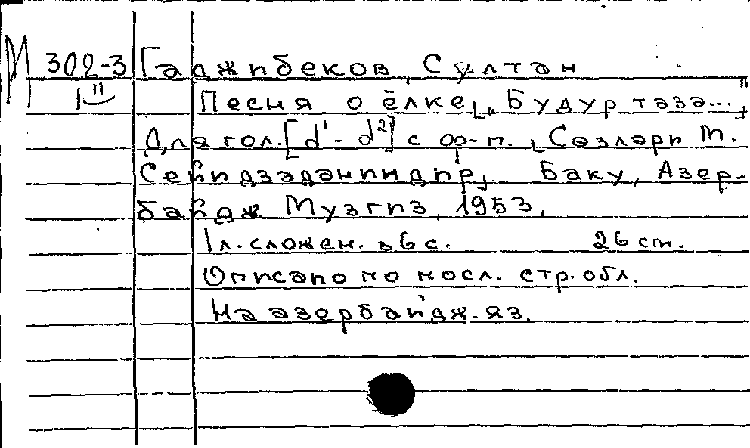 М 302-3 Гаджибеков, Султан
II
Песня о ёлке. "Будур тәзә..."
Для гол. [d¹-d²] с ф-п. [Сөзләри М.
Сейидзадәниндир]. Баку, Азер-
байдж. Музгиз, 1953.
1 л. сложен. в 6 с. 26 cm.
Описано по посл. стр. обл.
На азербайдж. яз.